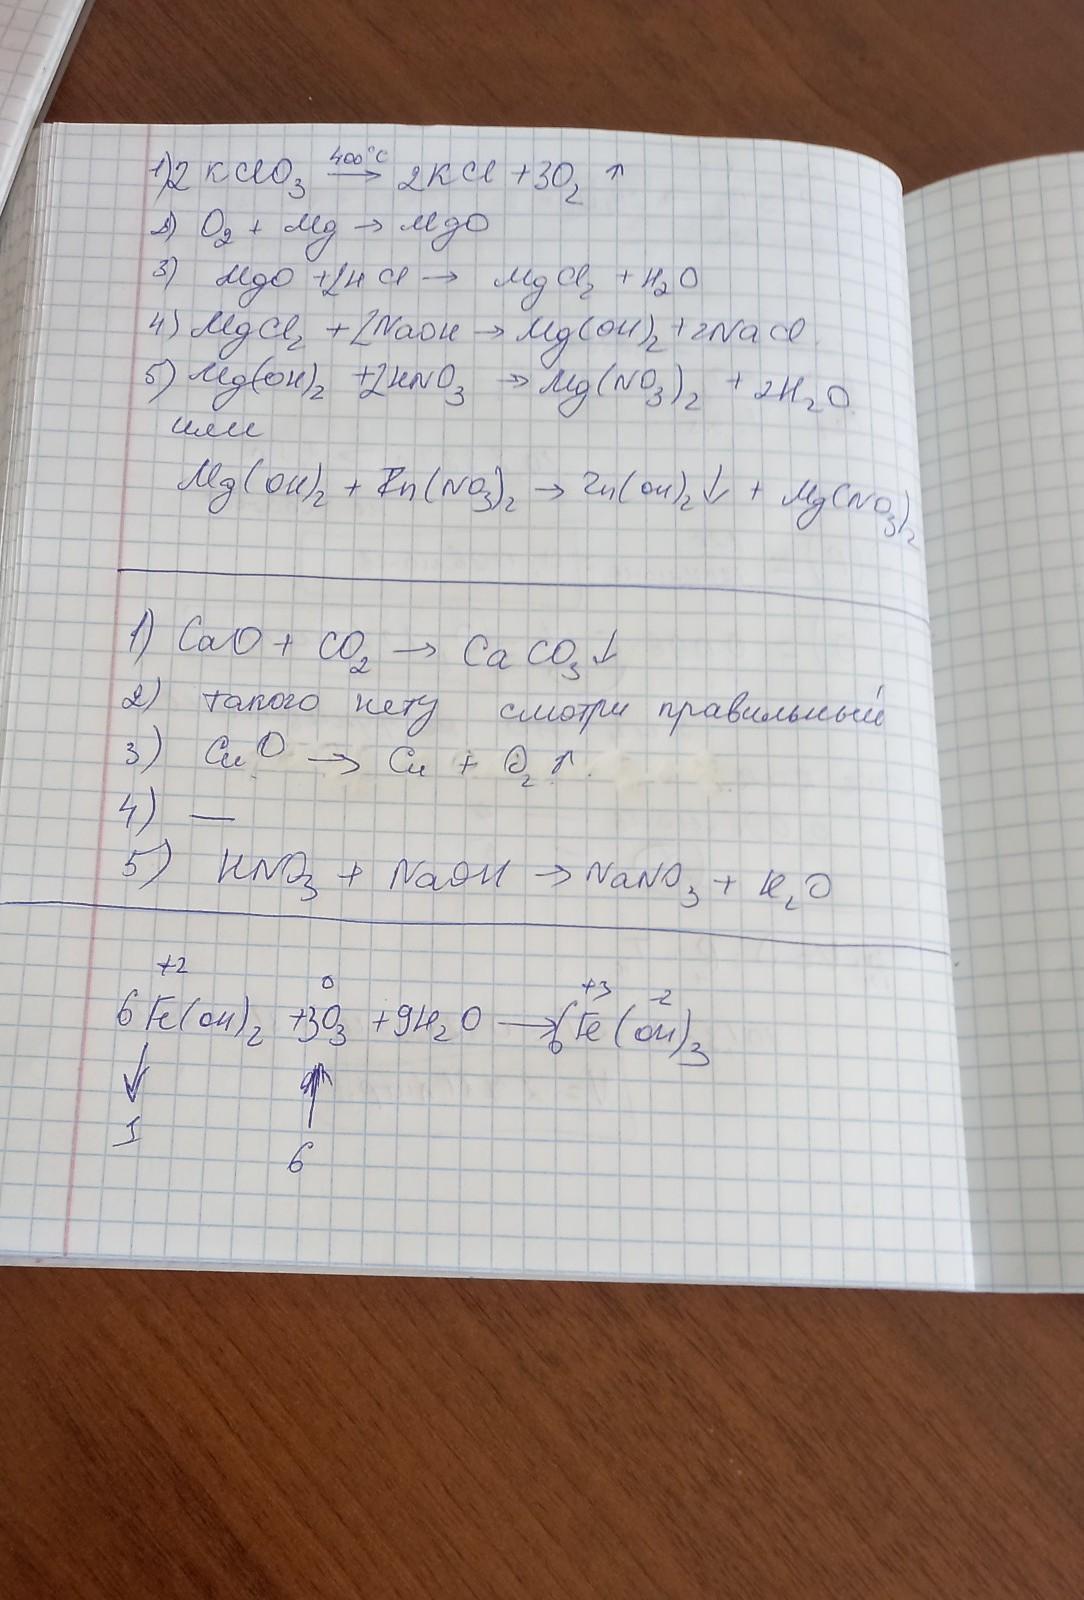 1) 2KClO₃ 400°C → 2KCl + 3O₂ ↑
2) O₂ + Mg → MgO
3) MgO + 2HCl → MgCl₂ + H₂O
4) MgCl₂ + 2NaOH → Mg(OH)₂ + 2NaCl
5) Mg(OH)₂ + 2HNO₃ → Mg(NO₃)₂ + 2H₂O
или
Mg(OH)₂ + Zn(NO₃)₂ → Zn(OH)₂↓ + Mg(NO₃)₂
1) CaO + CO₂ → CaCO₃↓
2) такого нету смотри правильный
3) CuO → Cu + O₂↑
4) —
5) HNO₃ + NaOH → NaNO₃ + H₂O
+2 0 +3 -2
6Fe(OH)₂ + 3O₃ + 9H₂O → 6Fe(OH)₃
↓ ↑
1
6